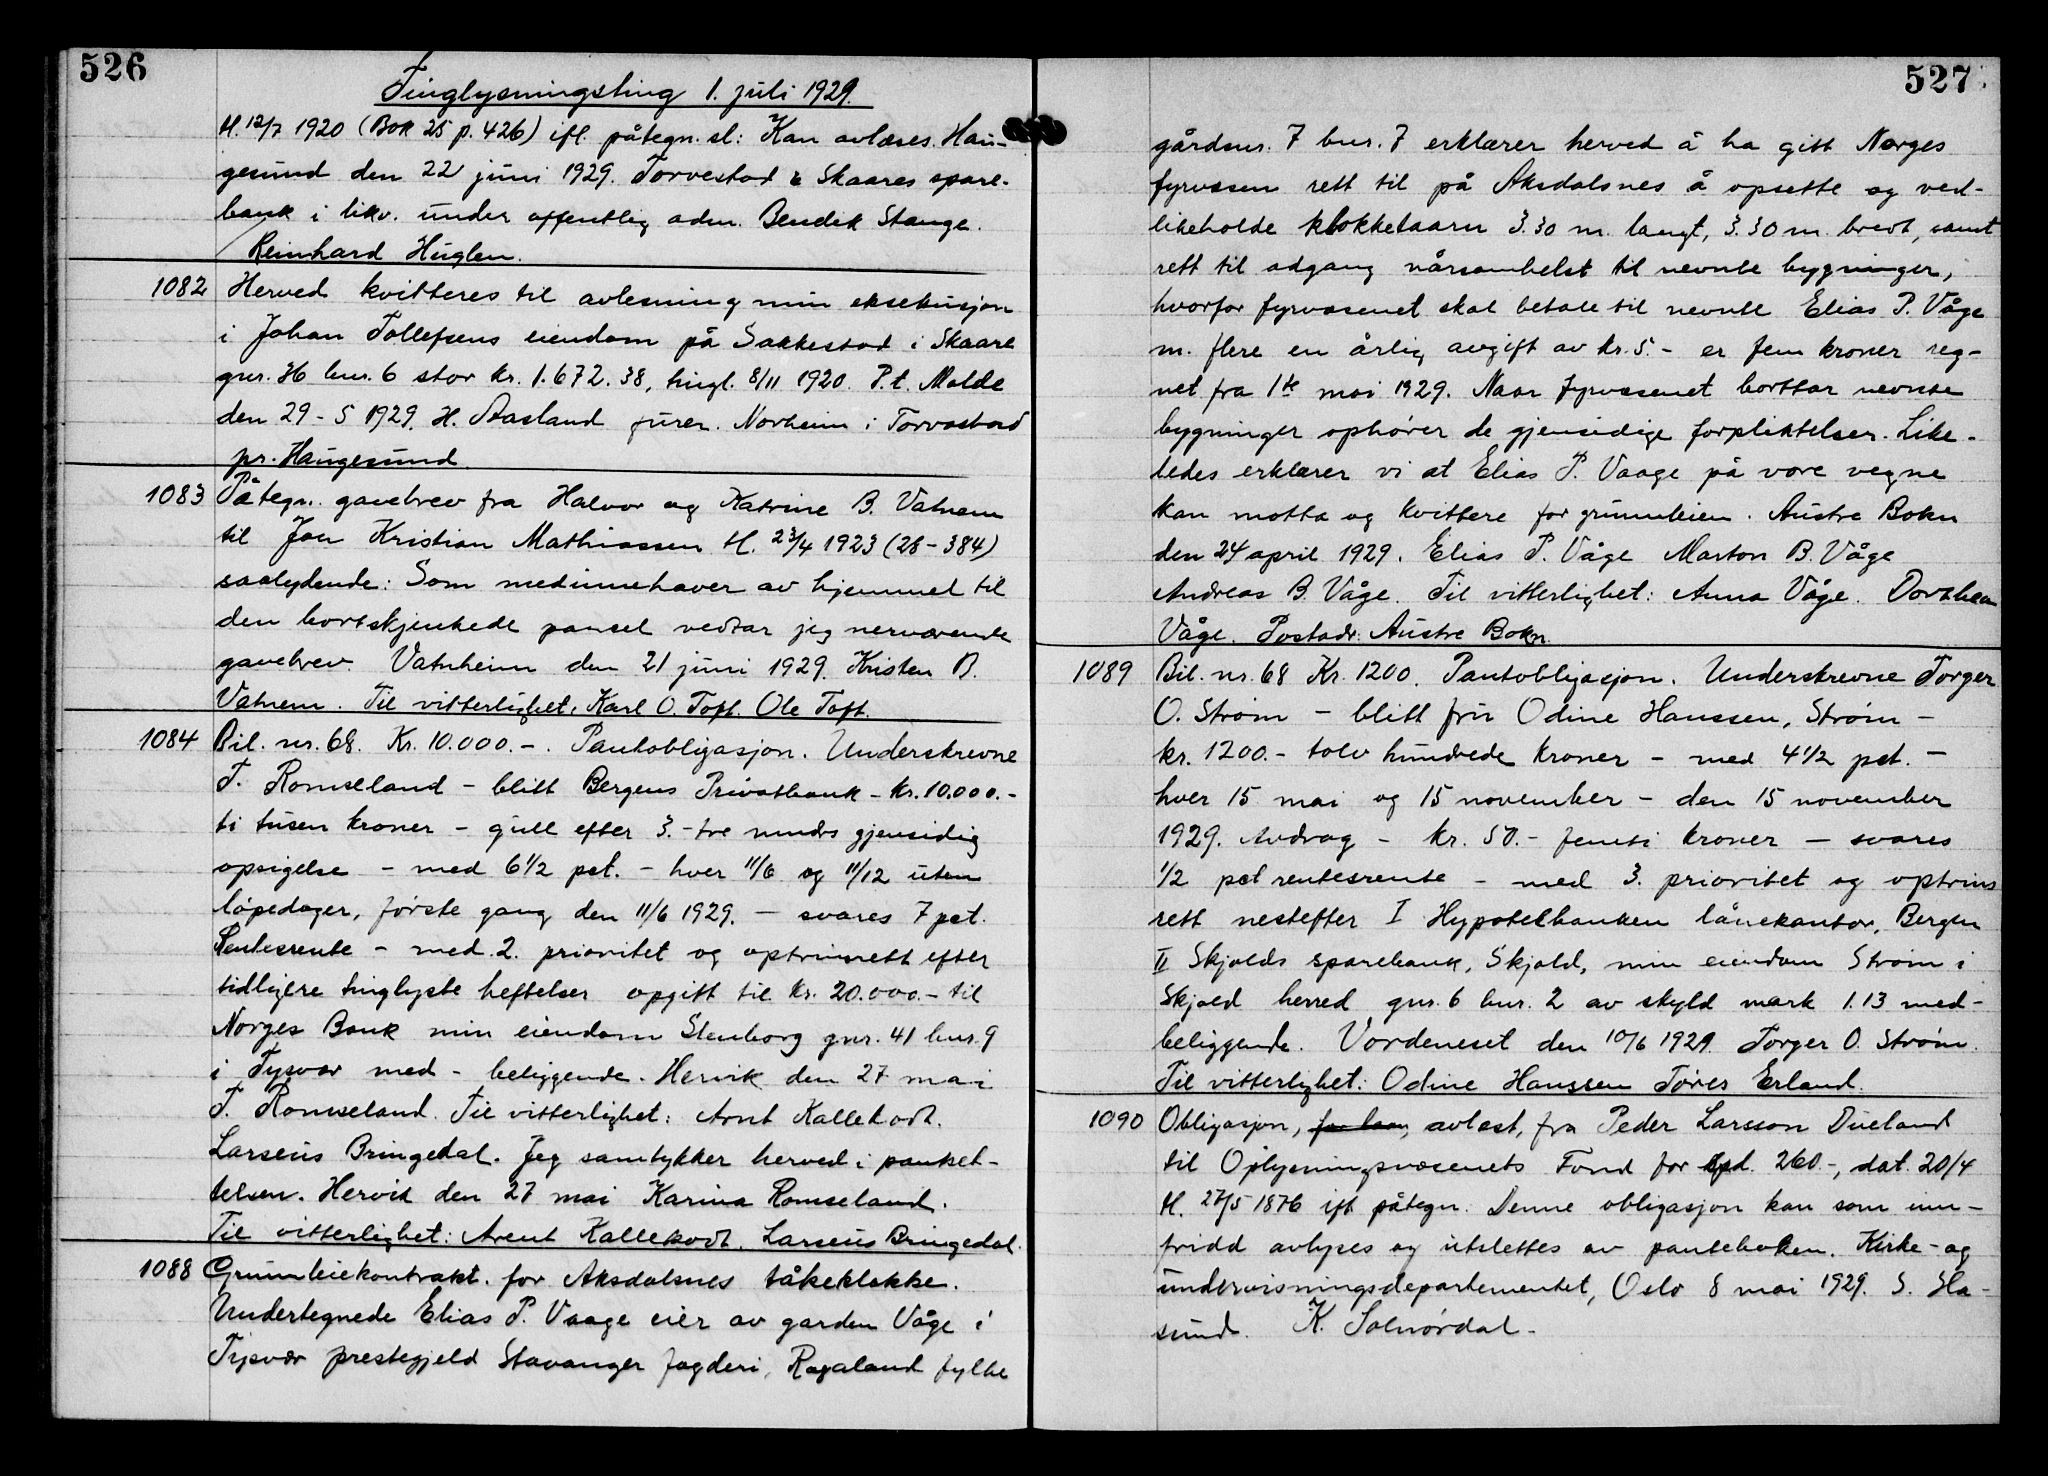 526
Tinglysningsting 1. juli 1929.
tl. 12/7 1920 (Bok 25 p. 426) ifl. påtegn. sl: Kan avlæses. Hau-
gesund den 22 juni 1929. Torvestad & Skaares spare-
bank i likv. under offentlig adm. Bendik Stange.
Reinhard Huglen.
1082 Herved kvitteres til avlesning min eksekusjon
i Johan Tollefsens eiendom på Sakkestad i Skaare
gnr. 36 bnr. 6 stor kr. 1.672.38, tingl. 8/11 1920. P.t. Molde
den 29-5 1929. H. Aasland furer. Norheim i Torvastad
pr. Haugesund.
1083 Påtegn. gavebrev fra Halvor og Katrine B. Vatnem
til Jon Kristian Mathiassen tl. 23/4 1923 (28-384)
saalydende: Som medinnehaver av hjemmel til
den bortskjenkede parsel vedtar jeg nerværende
gavebrev. Vatnheim den 21 juni 1929. Kristen B.
Vatnem. Til vitterlighet: Karl O. Toft. Ole Toft.
1084 Bil. nr. 68. Kr. 10.000.-. Pantobligasjon. Underskrevne
T. Romseland - blitt Bergens Privatbank - kr. 10.000.-
ti tusen kroner - gull efter 3.- tre mndrs gjensidig
opsigelse - med 6 1/2 pct. - hver 11/6 og 11/12 uten
løpedager, første gang den 11/6 1929. - svares 7 pct.
Rentesrente - med 2. prioritet og optrinnsrett efter
tidligere tinglyste heftelser opgitt til kr. 20.000.- til
Norges Bank min eiendom Stenborg gnr. 41 bnr. 9
i Tysvær med - beliggende. Hervik den 27 mai
T. Romseland. Til vitterlighet: Arnt Kallekodt.
Larseus Bringedal. Jeg samtykker herved i pantset-
telsen. Hervik den 27 mai Karina Romseland.
Til vitterlighet: Arent Kallekodt. Larseus Bringedal.
1088 Grunnleiekontrakt. for Aksdalsnes tåkeklokke.
Undertegnede Elias P. Vaage eier av garden Våge i
Tysvær prestegjeld Stavanger fogderi, Rogaland fylke
527
gårdsnr. 7 bnr. 7 erklærer herved å ha gitt Norges
fyrvesen rett til på Aksdalsnes å opsette og ved-
likeholde klokketaarn 3.30 m. langt, 3.30 m. bredt, samt
rett til adgang nårsomhelst til nevnte bygninger,
hvorfor fyrvæsenet skal betale til nevnte Elias P. Våge
m. flere en årlig avgift av kr. 5.- er fem kroner reg-
net fra 1ste mai 1929. Naar fyrvæsenet borttar nevnte
bygninger ophører de gjensidige forpliktelser. Like-
ledes erklærer vi at Elias P. Vaage på vore vegne
kan motta og kvittere for grunnleien. Austre Bokn
den 24 april 1929. Elias P. Våge Marton B. Våge
Andreas B. Våge. Til vitterlighet: Anna Våge. Dorthea
Våge. Postadr: Austre Bokn.
1089 Bil. nr. 68 Kr. 1200. Pantobligasjon. Underskrevne Torger
O. Strøm - blitt fru Odine Hanssen, Strøm -
kr. 1200.- tolv hundrede kroner - med 4 1/2 pct. -
hver 15 mai og 15 november - den 15 november
1929. Avdrag - kr. 50.- femti kroner - svares
1/2 pct rentesrente - med 3. prioritet og optrins
rett nestefter I Hypotekbanken lånekontor, Bergen
II Skjolds sparebank, Skjold, min eiendom Strøm i
Skjold herred gnr. 6 bnr. 2 av skyld mark 1.13 med-
beliggende. Vordeneset den 10/6 1929. Torger O. Strøm.
Til vitterlighet: Odine Hanssen Tøres Erland.
1090 Obligasjon, for laan, avlest, fra Peder Larsson Dueland
til Oplysningsvæsenets Fond for Spd. 260.-, dat. 20/4
tl. 27/5 1876 ift påtegn. Denne obligasjon kan som inn-
fridd avlyses og utslettes av panteboken. Kirke- og
undervisningsdepartementet, Oslo 8 mai 1929. S. Ha-
sund. K. Solnørdal.